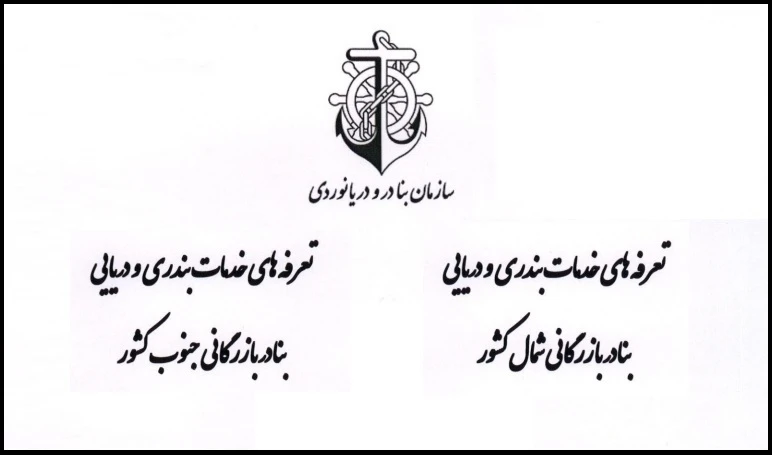 سازمان بنادر و دریانوردی
تعرفه های خدمات بندری و دریایی
بنادر بازرگانی شمال کشور
تعرفه های خدمات بندری و دریایی
بنادر بازرگانی جنوب کشور